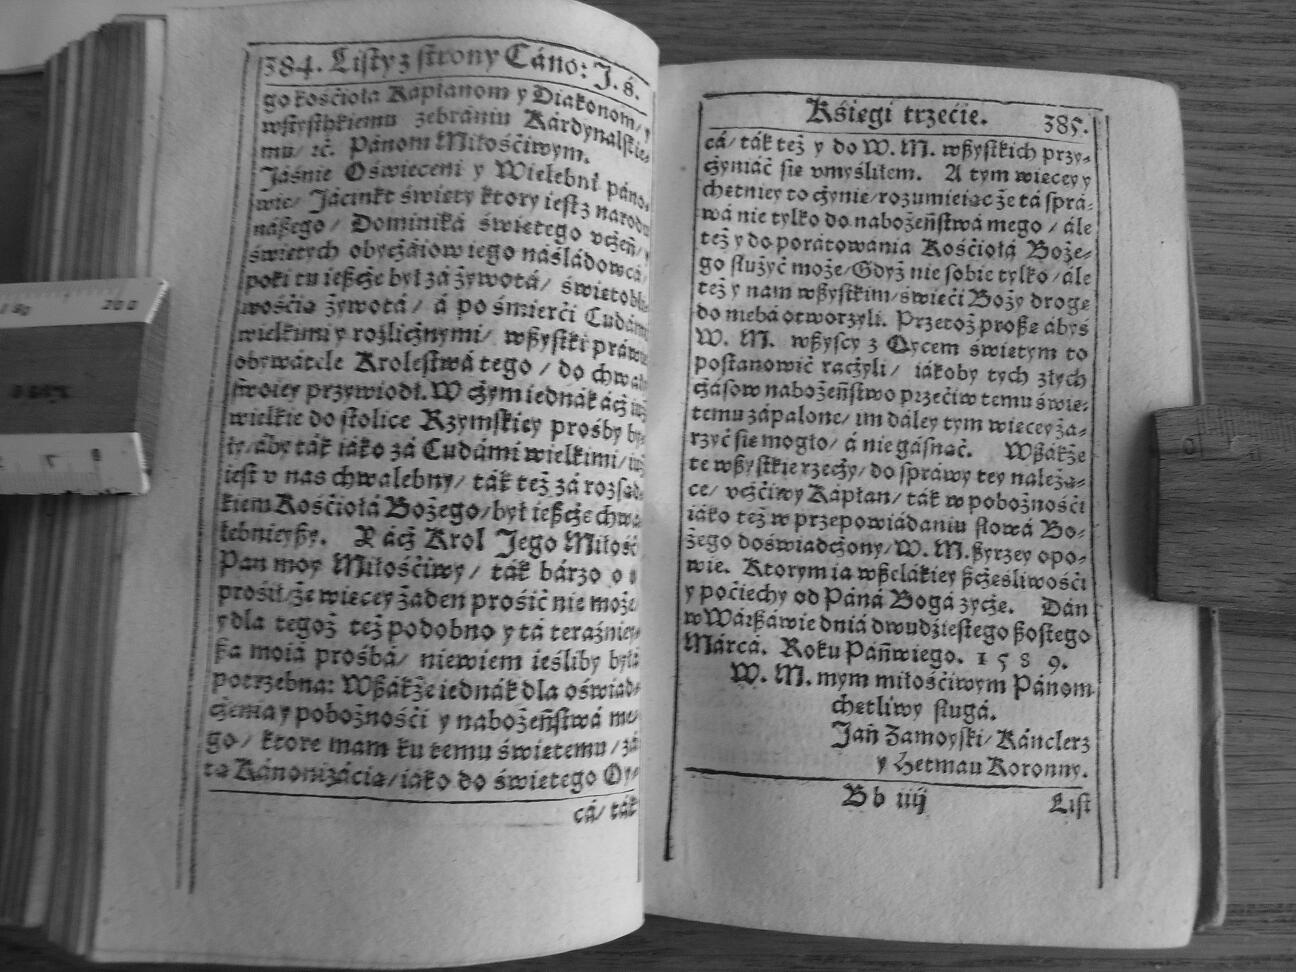 384. Listy z strony Cáno: J. S.
go kośćiołá Kápłanom y Diakonom/ y
wszystkiemu zebrániu Kárdynalskie-
mu/ ić. Pánom Miłośćiwym.
Jáśnie Oświeceni y Wielebni páno-
wie/ Jácinkt święty ktory iest z narodu
nászego/ Dominiká świętego vczeń/
świętych obyczáiow iego náśládowcá/
poki tu iescze był zá żywotá/ świętobli-
wośćią żywotá/ á po śmierći Cudámi
wielkimi y rozlicznymi/ wszystki práwie
obywátele Krolestwá tego / do chwały
swoiey przywiodł. W czym iednák ácz iuż
wielkie do stolice Rzymskiey prośby by-
ły/ áby ták iáko zá Cudámi wielkimi/ iuż
iest v nas chwalebny/ ták też zá rozsąd-
kiem Kośćiołá Bożego/ był iescze chwa-
lebnieyszy. Y ácz Krol Jego Miłość
Pan moy Miłośćiwy/ ták bárzo o to
prośił/ że więcey żaden prośić nie może/
y dla tegoż też podobno y tá teraźniey-
sza moiá prośbá/ niewiem ieśliby byłá
potrzebna: Wszákże iednák dla oświad-
czenia y pobożnośći y nabożeństwá me-
go/ ktore mam ku temu świętemu / zá
tą Kánonizácią/ iáko do świętego Oy-
cá/ ták
Kśięgi trzećie. 385.
cá/ ták też y do W. M. wszystkich przy-
czyniáć się vmyśliłem. A tym więcey y
chętniey to czynię/ rozumieiąc że tá spra-
wá nie tylko do nabożeństwá mego / ále
też y do porátowánia Kośćiołá Boże-
go służyć może/ Gdyż nie sobie tylko / ále
też y nam wszystkim/ święći Boży drogę
do niebá otworzyli. Przetoż proszę ábyś
W. M. wszyscy z Oycem świętym to
postánowić raczyli/ iákoby tych złych
czásow nabożeństwo przećiw temu świę-
temu zápalone/ im dáley tym więcey ża-
rzyć się mogło/ á nie gásnąć. Wszákże
te wszystkie rzeczy/ do spráwy tey należą-
ce/ vczćiwy Kápłan/ ták w pobożnośći
iáko też w przepowiádániu słowá Bo-
żego doświadczony/ W. M. szyrzey opo-
wie. Ktorym ia wszelákiey szczęśliwośći
y poćiechy od Páná Bogá życzę. Dán
w Wárszáwie dniá dwudziestego szostego
Márcá. Roku Páńskiego. 1 5 8 9.
W. M. mym miłośćiwym Pánom
chętliwy sługá.
Jan Zamoyski/ Kánclerz
y Hetman Koronny.
B b iiij List